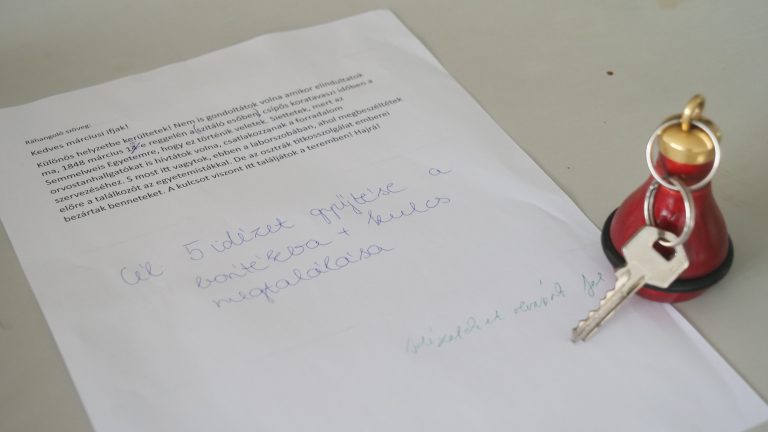 Ráhangoló szöveg:
Kedves márciusi ifjak!
Különös helyzetbe kerültetek! Nem is gondoltátok volna amikor elindultatok
ma, 1848 március 15-re reggelén a szitáló esőben, csípős koratavaszi időben a
Semmelweis Egyetemre, hogy ez történik veletek. Siettetek, mert az
orvostanhallgatókat is hívtátok volna, csatlakozzanak a forradalom
szervezéséhez. S most itt vagytok, ebben a laborszobában, ahol megbeszéltétek
előre a találkozót az egyetemistákkal. De az osztrák titkosszolgálat emberei
bezártak benneteket. A kulcsot viszont itt találjátok a teremben! Hajrá!
Cél 5 idézet gyűjtése a
borítékba + kulcs
megtalálása